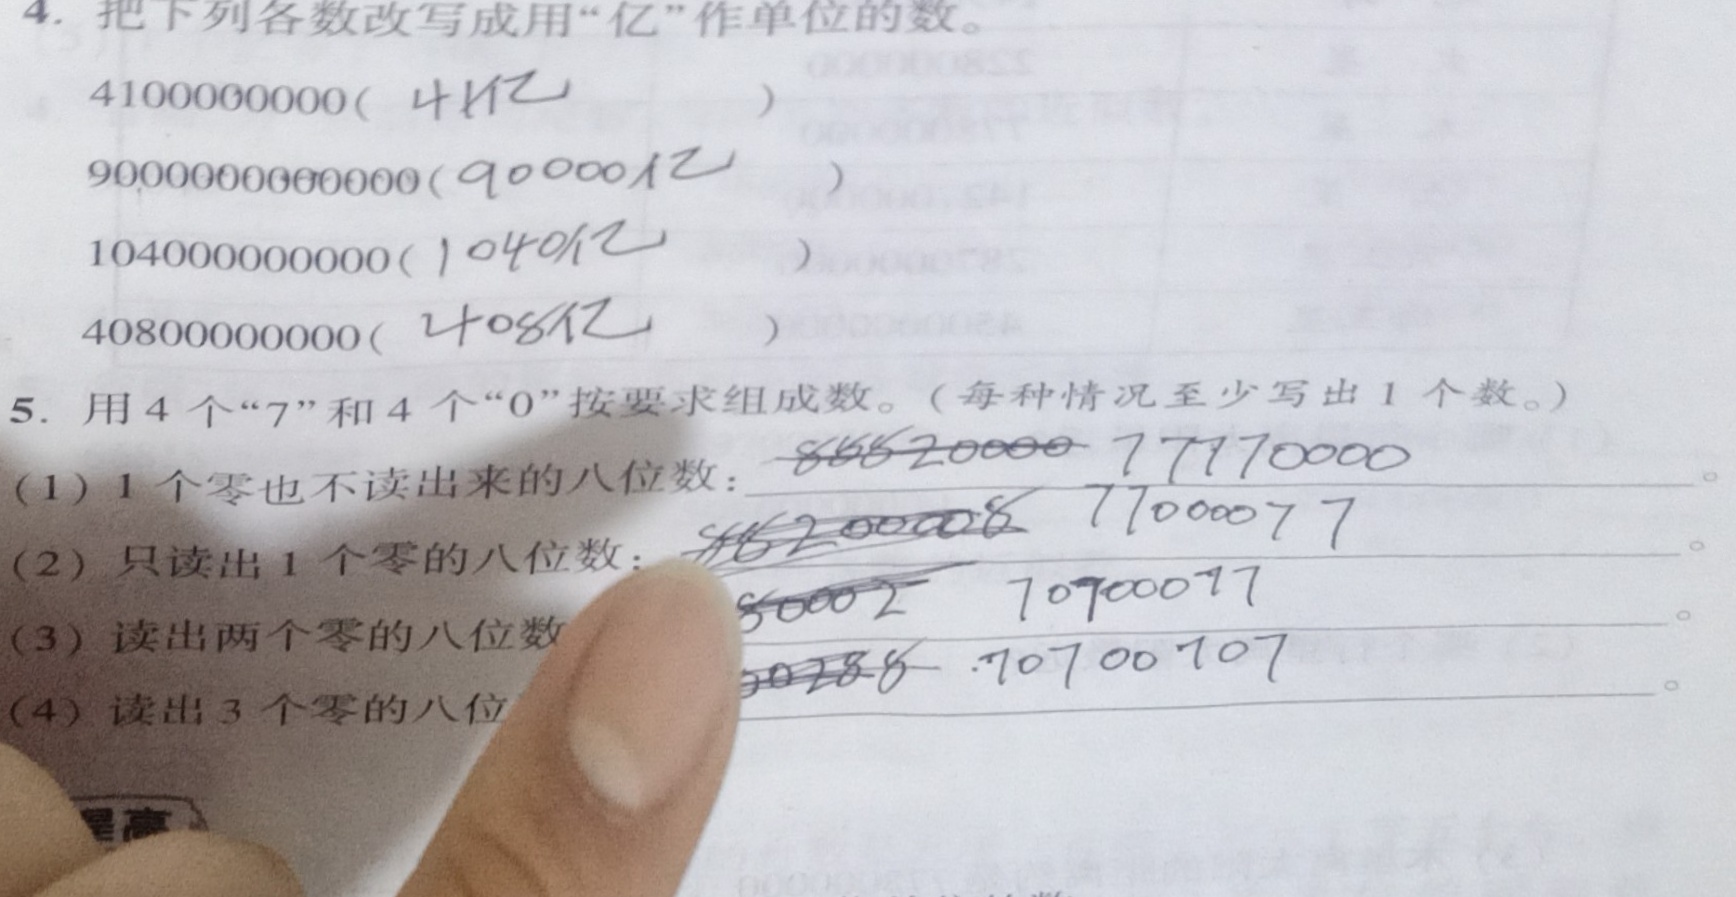 4. 把下列各数改写成用“亿”作单位的数。
4100000000( 41亿 )
9000000000000(90000亿 )
104000000000(1040亿 )
40800000000( 408亿 )
5. 用4个“7”和4个“0”按要求组成数。(每种情况至少写出1个数。)
(1) 1个零也不读出来的八位数: 77770000 。
(2) 只读出1个零的八位数: 77000077 。
(3) 读出两个零的八位数 70700077 。
(4) 读出3个零的八位 70700707 。
提高